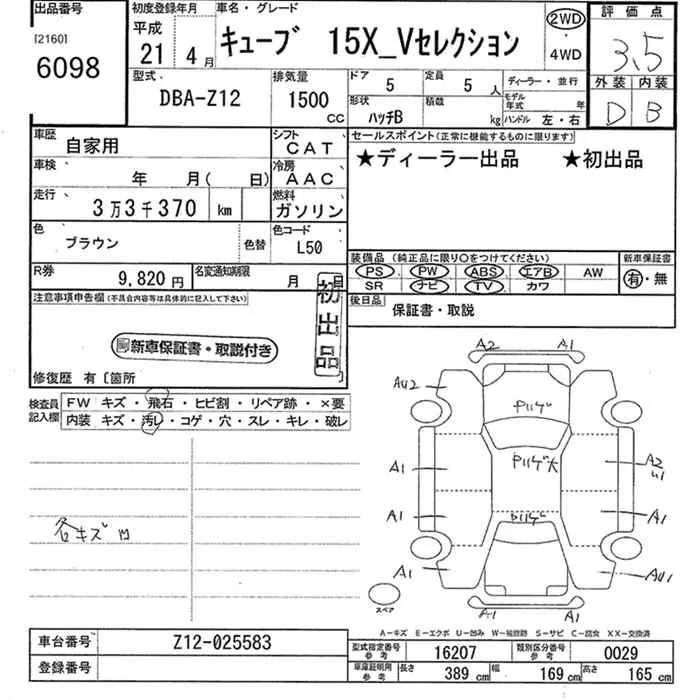 出品番号
[2160]
6098
初度登録年月
平成
21 4月
車名・グレード
キューブ 15X_Vセレクション
2WD
・
4WD
評価点
3.5
外装 内装
D B
型式
DBA-Z12
排気量
1500
CC
ドア 5
定員 5 人
形状
ハッチB
積載 kg
ディーラー・並行
モデル年式 年
ハンドル 左・右
車歴 自家用
シフト CAT
車検 年 月( 日)
冷房 AAC
走行 3万3千370 km
燃料 ガソリン
色 ブラウン
色替
色コード L50
R券 9,820円
名変通知期限 月 日
セールスポイント(正常に機能するものに限ります)
★ディーラー出品 ★初出品
装備品(純正品に限り○をつけてください)
新車保証書
PS PW ABS エアB AW
SR ナビ TV カワ
有・無
後日品
保証書・取説
注意事項申告欄(不具合内容等は具体的に記入して下さい)
新車保証書・取説付き
初出品
修復歴 有〔箇所
検査員記入欄
FW キズ・飛石・ヒビ割・リペア跡・×要
内装 キズ・汚レ・コゲ・穴・スレ・キレ・破レ
各キズ凹
A2 A1
AU2
Pリリゲ
A1
Pリリゲ大
A2
A1
A1
A1
AU1
A1 A1
スペア
A-キズ E-エクボ U-凹み W-補修跡 S-サビ C-腐食 XX-交換済
車台番号 Z12-025583
登録番号
型式指定番号 参考 16207
類別区分番号 参考 0029
車庫証明用 参考
長さ 389 cm 幅 169 cm 高さ 165 cm